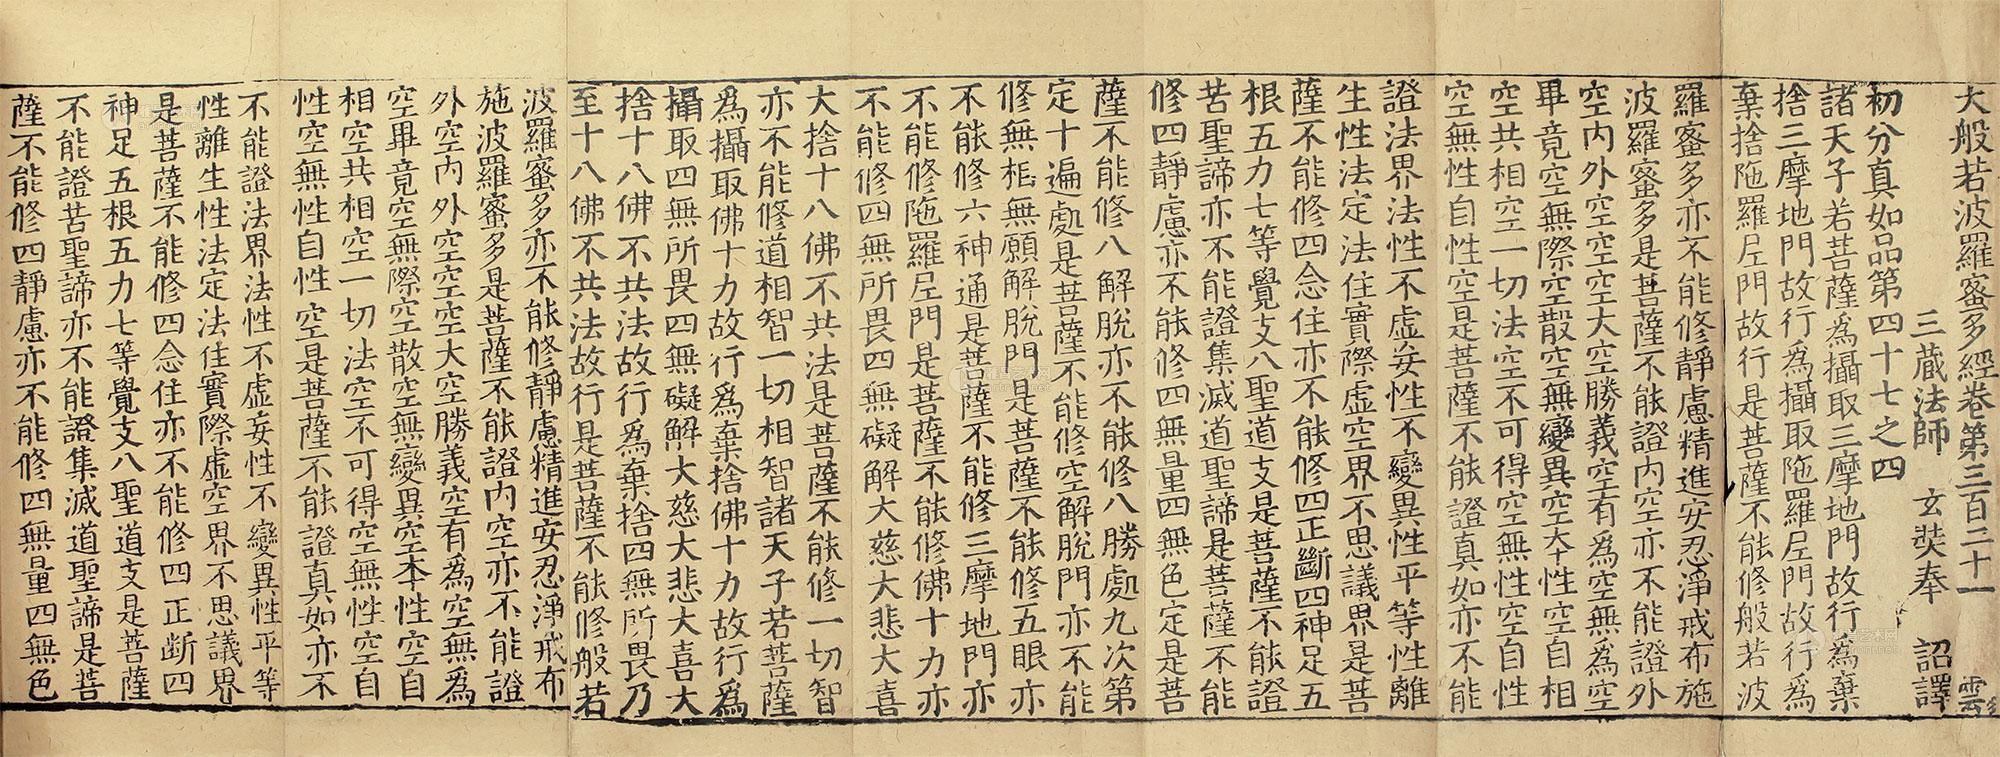 大般若波羅蜜多經卷第三百二十一 雲
三藏法師 玄奘奉 詔譯
初分真如品第四十七之四
諸天子若菩薩為攝取三摩地門故行為棄
捨三摩地門故行為攝取陁羅尼門故行為
棄捨陁羅尼門故行是菩薩不能修般若波
羅蜜多亦不能修靜慮精進安忍淨戒布施
波羅蜜多是菩薩不能證內空亦不能證外
空內外空空空大空勝義空有為空無為空
畢竟空無際空散空無變異空本性空自相
空共相空一切法空不可得空無性空自性
空無性自性空是菩薩不能證真如亦不能
證法界法性不虛妄性不變異性平等性離
生性法定法住實際虛空界不思議界是菩
薩不能修四念住亦不能修四正斷四神足五
根五力七等覺支八聖道支是菩薩不能證
苦聖諦亦不能證集滅道聖諦是菩薩不能
修四靜慮亦不能修四無量四無色定是菩
薩不能修八解脫亦不能修八勝處九次第
定十遍處是菩薩不能修空解脫門亦不能
修無相無願解脫門是菩薩不能修五眼亦
不能修六神通是菩薩不能修三摩地門亦
不能修陁羅尼門是菩薩不能修佛十力亦
不能修四無所畏四無礙解大慈大悲大喜
大捨十八佛不共法是菩薩不能修一切智
亦不能修道相智一切相智諸天子若菩薩
為攝取佛十力故行為棄捨佛十力故行為
攝取四無所畏四無礙解大慈大悲大喜大
捨十八佛不共法故行為棄捨四無所畏乃
至十八佛不共法故行是菩薩不能修般若
波羅蜜多亦不能修靜慮精進安忍淨戒布
施波羅蜜多是菩薩不能證內空亦不能證
外空內外空空空大空勝義空有為空無為
空畢竟空無際空散空無變異空本性空自
相空共相空一切法空不可得空無性空自
性空無性自性空是菩薩不能證真如亦不
不能證法界法性不虛妄性不變異性平等
性離生性法定法住實際虛空界不思議界
是菩薩不能修四念住亦不能修四正斷四
神足五根五力七等覺支八聖道支是菩薩
不能證苦聖諦亦不能證集滅道聖諦是菩
薩不能修四靜慮亦不能修四無量四無色